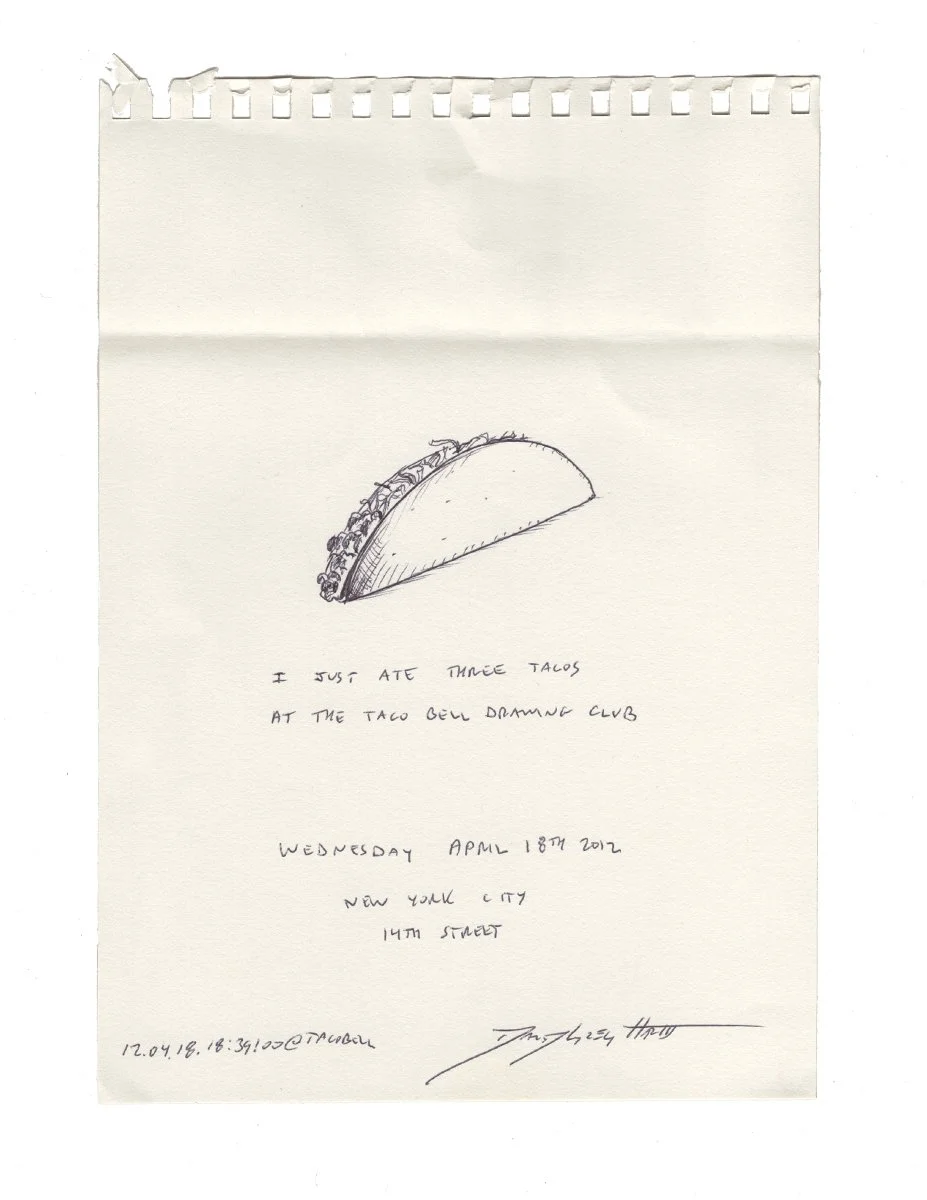 I JUST ATE THREE TACOS
AT THE TACO BELL DRAWING CLUB
WEDNESDAY APRIL 18TH 2012
NEW YORK CITY
14TH STREET
12.04.18.18:39:00@TACOBELL